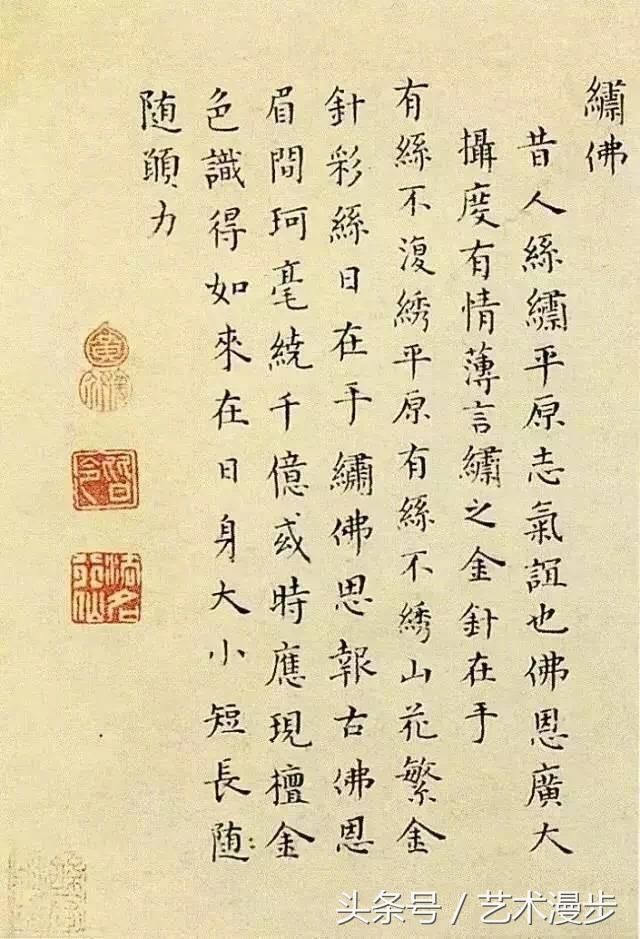 繡佛
昔人絲繡平原志氣誼也佛恩廣大
攝度有情薄言繡之金針在手
有絲不復綉平原有絲不綉山花繁金
針彩絲日在手繡佛思報古佛恩
眉間珂毫繞千億或時應現檀金
色識得如來在日身大小短長随:
随願力
头条号 / 艺术漫步